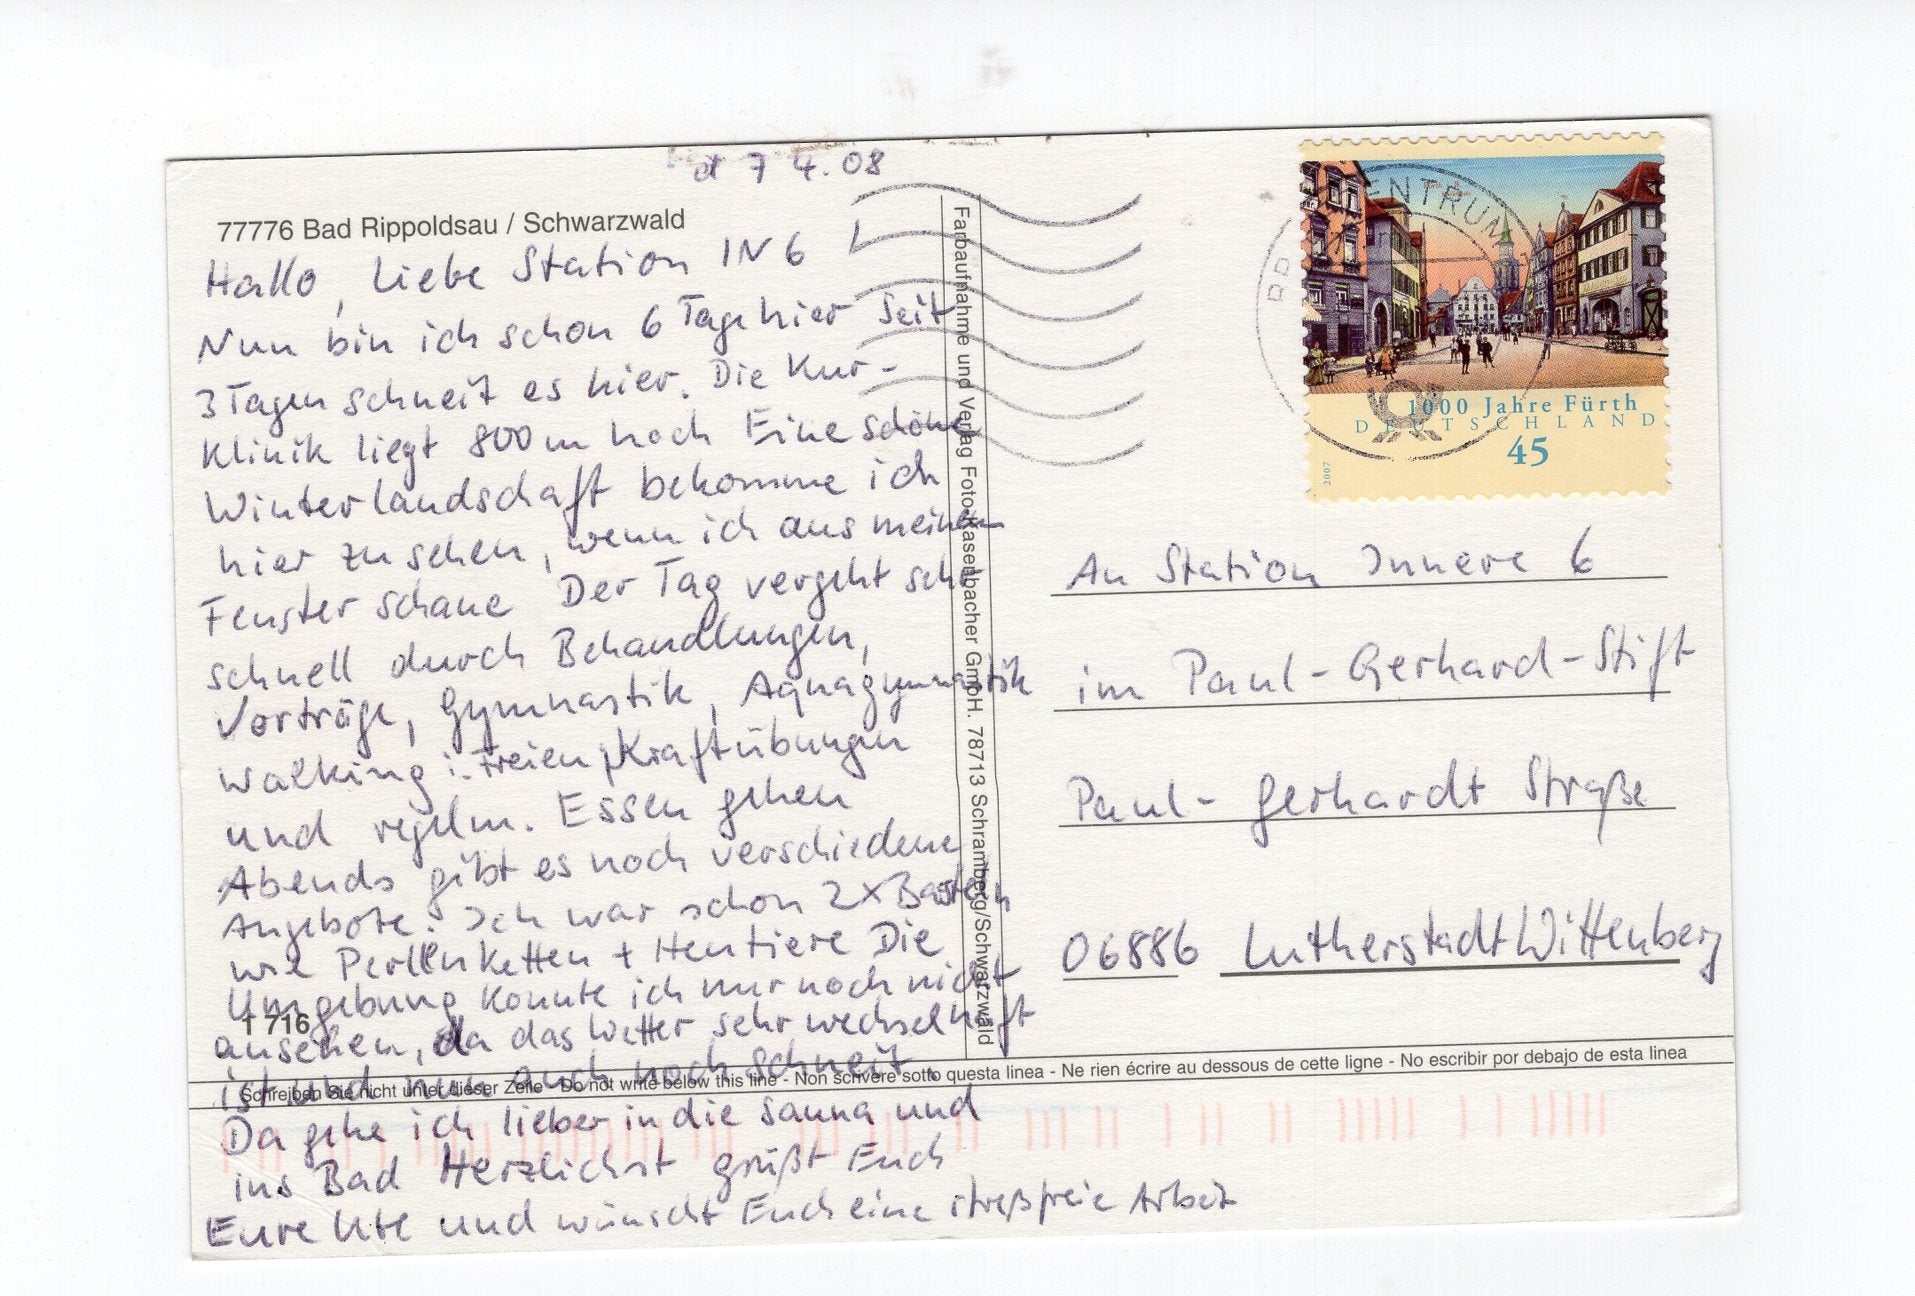 d 7 4.08
77776 Bad Rippoldsau / Schwarzwald
Hallo, liebe Station IN 6 !
Nun bin ich schon 6 Tage hier Seit
3 Tagen schneit es hier. Die Kur-
Klinik liegt 800 m hoch Eine schöne
Winterlandschaft bekomme ich
hier zu sehen, wenn ich aus meinem
Fenster schaue Der Tag vergeht sehr
schnell durch Behandlungen,
Vorträge, Gymnastik, Aquagymnastik
Walking i. Freien, Kraftübungen
und regelm. Essen gehen
Abends gibt es noch verschiedene
Angebote. Ich war schon 2x Basteln
wie Perllenketten + Heutiere Die
Umgebung konnte ich nur noch nicht
ansehen, da das Wetter sehr wechselhaft
ist und nun auch noch schneit.
Da gehe ich lieber in die Sauna und
ins Bad Herzlichst grüßt Euch
Eure Ute und wünscht Euch eine streßfreie Arbeit
1 716
Schreiben Sie nicht unter dieser Zeile - Do not write below this line - Non scrivere sotto questa linea - Ne rien écrire au dessous de cette ligne - No escribir por debajo de esta linea
Farbaufnahme und Verlag Foto-Kasenbacher GmbH. 78713 Schramberg/Schwarzwald
ENTRUM
1000 Jahre Fürth
DEUTSCHLAND
45
2007
An Station Innere 6
im Paul-Gerhard-Stift
Paul-Gerhardt Straße
06886 Lutherstadt Wittenberg